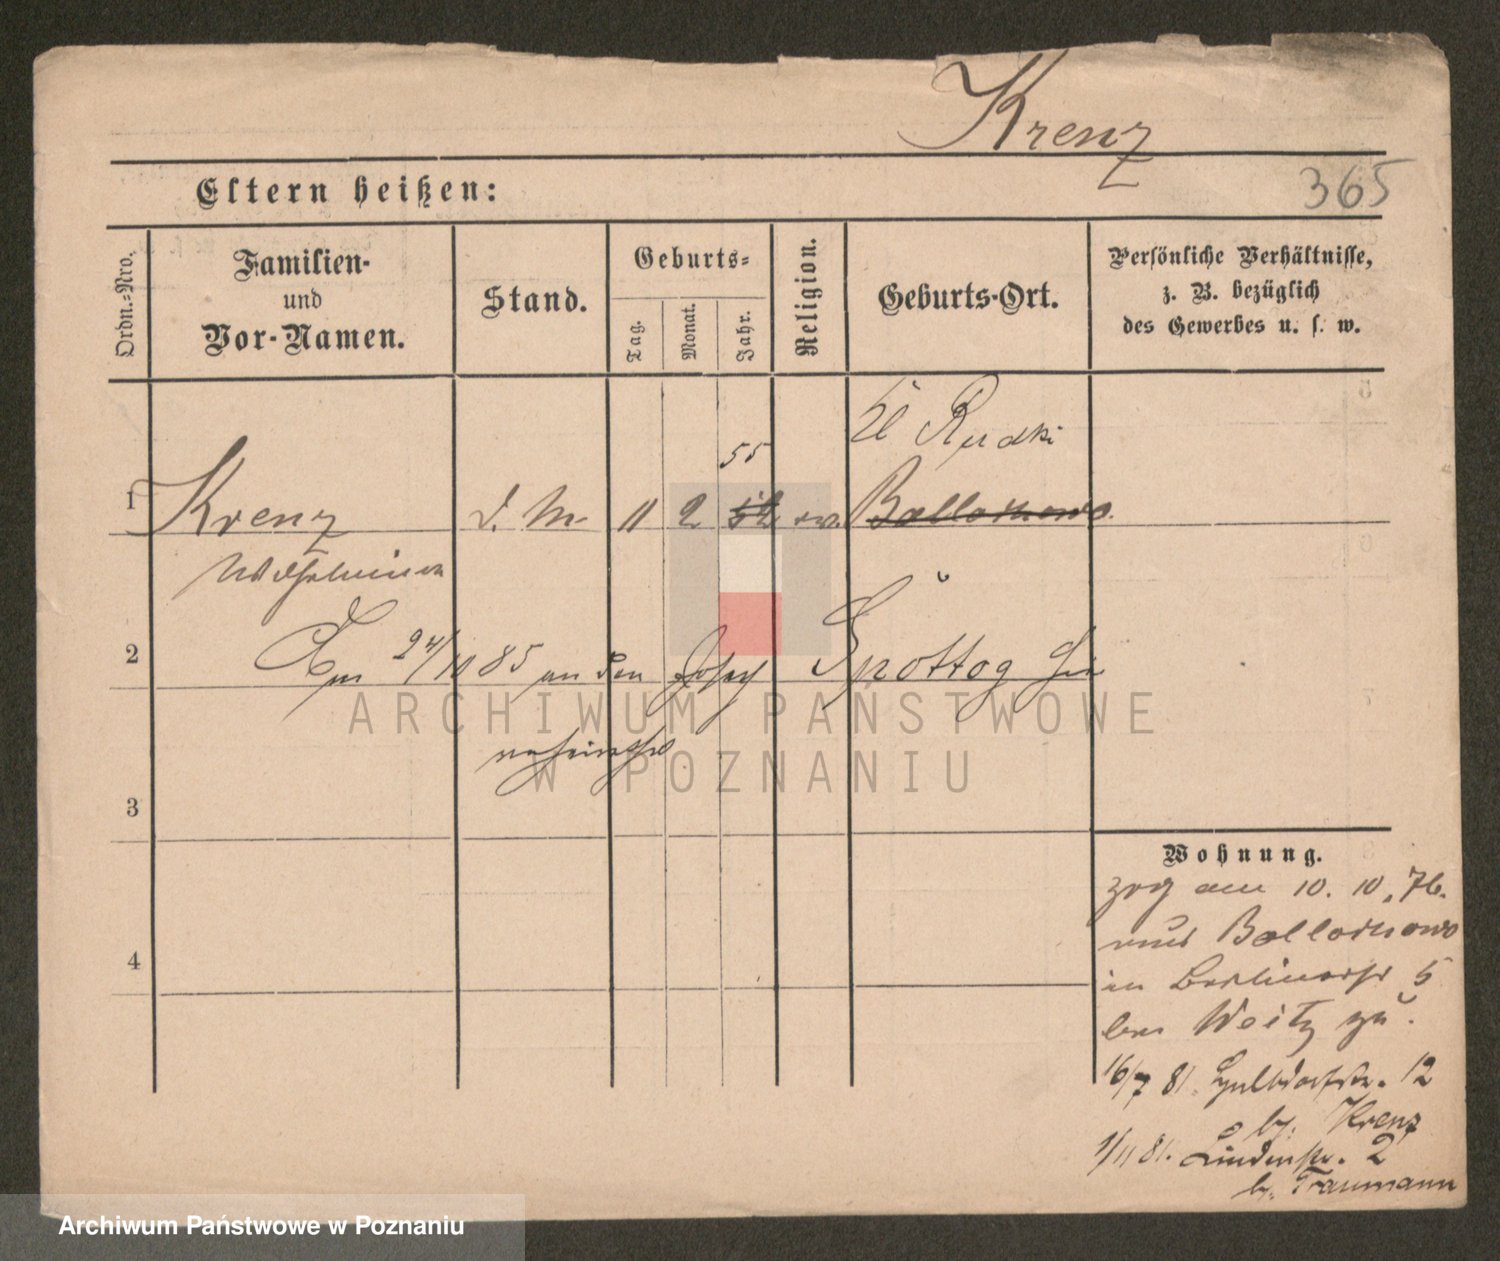 Krenz
365
Eltern heißen:
Ordn.-Nro.
Familien-
und
Vor-Namen.
Stand.
Geburts-
Tag.
Monat.
Jahr.
Religion.
Geburts-Ort.
Persönliche Verhältnisse,
z. B. bezüglich
des Gewerbes u. s. w.
Kl Rudki
55
1 Krenz d. M. 11 2 52 ev.
Wilhelmine
2 Am 24/11 85 an den Josef Spöttog hier
verheirathet
ARCHIWUM PAŃSTWOWE
W POZNANIU
3
4
Wohnung.
zog am 10. 10. 76.
aus
in Berlinerstr 5
bei Weitz zu.
16/7 81. 12
b. Krenz
1/11 81. Lindenstr. 2
b. Traumann
Archiwum Państwowe w Poznaniu